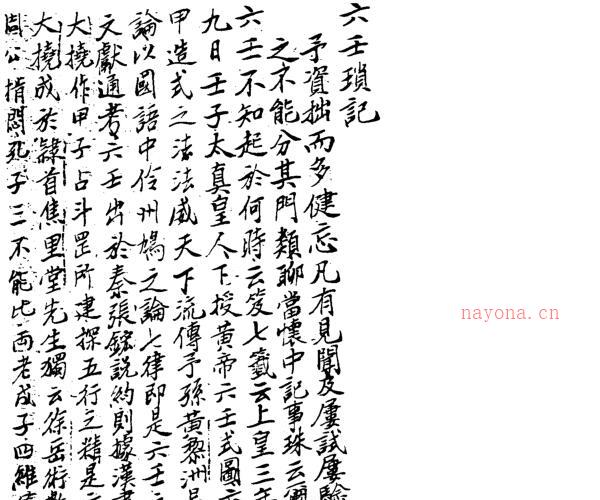 六壬瑣記
予資拙而多健忘凡有見聞及屢試屢驗
之不能分其門類聊當懷中記事珠云爾
六壬不知起於何時云笈七籤云上皇三年
九日壬子太真皇人下授黃帝六壬式圖六
甲造式之法法威天下流傳子孫黃黎洲
論以國語中伶州鳩之論七律即是六壬
文獻通考六壬出於秦張鋐説約則據漢書
大撓作甲子占斗罡所建探五行之精是
大撓成於隸首焦里堂先生獨云徐岳術數
周公揹悶孔子三不能比両老成子四維
nayona.cn